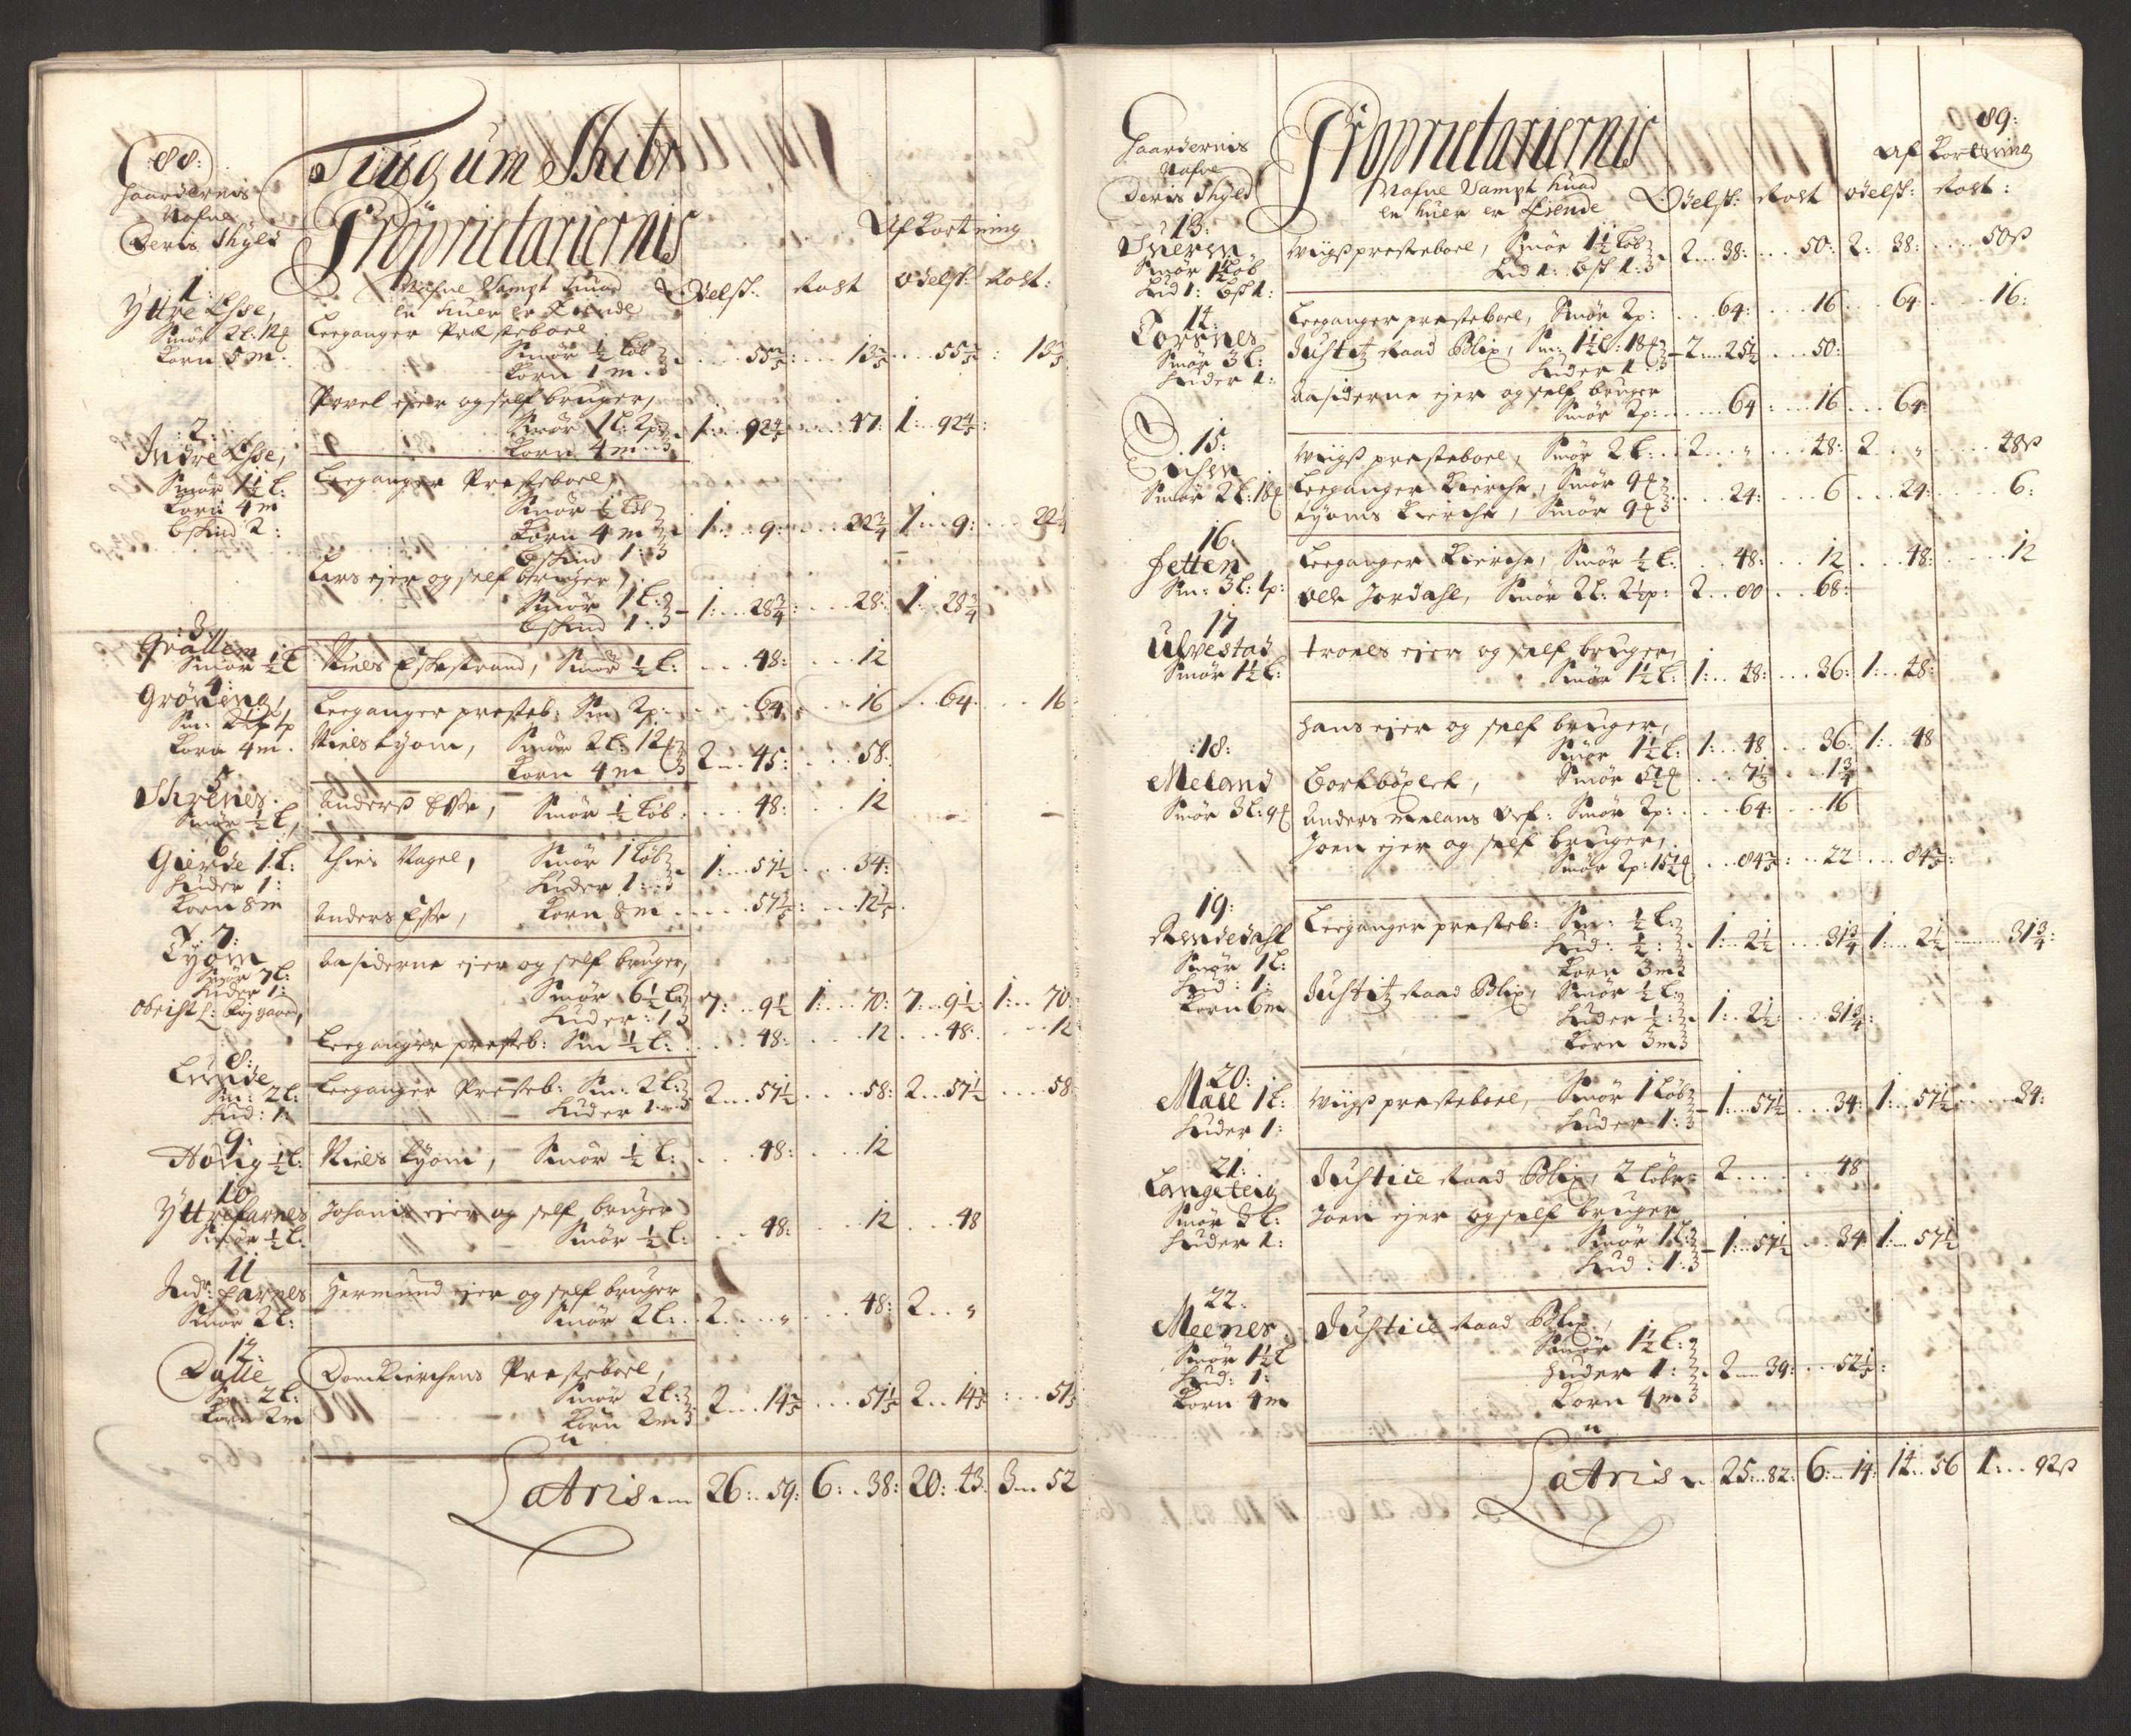 :88:
Tiugum Skibr
Gaardernis
Nafne
Deris Skyld
Proprietariernis
Nafne Sampt huad
en huer er Eiende
Afkortning
Odelsk: Rost Odelsk: Rost:
1:
Yttre Esse,
Smør 2 l: 12
Korn 5 m:
Leeganger Præsteboel
Smør ½ Løb
Korn 1 m. 55 13 55 13
Povel ejer og self bruger,
Smør 1 l: 2 p
Korn 4 m 1: 92⅘ 47: 1: 92⅘:
:2:
Indre Esse,
Smør 1½ l:
Korn 4 m
bskind 2:
Leeganger Præsteboel,
Smør ½ Løb
Korn 4 m
bskind 1: 1: 9: 22¼ 1: 9: 22¼
Lars ejer og self bruger,
Smør 1 l:
bskind 1: 1: 28¾ 28: 1: 28¾
:3:
Grållem
Smør ½ l
Niels Eskestrand, Smør ½ l: 48: 12
4:
Grøning,
Korn 4 m.
Leeganger presteb: Sm 2 p: 64 16 64 16
Niels Lyom, Smør 2 l: 12
Korn 4 m 2 45: 58:
5:
Skrenes:
Smør ½ l
Anders Esse, Smør ½ Løb 48: 12
6
Gierde 1 l:
Huder 1:
Korn 8 m
Thies Nagel, Smør 1 Løb
Huder 1: 1: 57½ 34:
Anders Esse, Korn 8 m 57 12
7:
Tyom
Smør 7 l:
Huder 1:
Basiderne ejer og self bruger,
Smør 6½ l:
Huder: 1 7: 9½ 1: 70: 7: 9½: 1: 70:
Leeganger presteb: Sm ½ l: 48: 12 48: 12
8:
Lunde
Sm: 2 l:
Hud: 1:
Leeganger Presteb: Sm: 2 l:
Huder 1 2 57½ 58: 2 57½ 58
9:
Houg ½ l:
Niels Lyom, Smør ½ l: 48: 12
10
Yttrefarnes
Smør ½ l:
Johanis ejer og self bruger
Smør ½ l: 48: 12 48
11
Indr: farnes
Smør 2 l:
Hermund ejer og self bruger
Smør 2 l: 2 " 48: 2 "
12:
Dalle
Sm: 2 l:
Korn 2 m
DomKierchens Presteboel,
Smør 2 l:
Korn 2 m 2 14 51⅕ 2 14 51
Latris 26: 59: 6: 38: 20: 43 3 52
89:
Gaardernis
Nafne
Deris Skyld
Proprietariernis
Nafne Sampt huad
en huer er Eiende
Afkortning
Odelsk: Rost odelsk: Rost:
13:
Smør 1½ Løb
Hud 1: bsk 1:
Wiigs presteboel, Smør 1½ Løb
Hud 1: bsk 1: 2 38: 50: 2: 38: 50 ß
14:
Torsnes
Smør 3 l:
Huder 1:
Leeganger presteboel, Smør 2 p: 64: 16 64: 16:
Justitz Raad Blix, Sm: 1½ l: 18
Huder 1 2 25½ 50:
Basiderne ejer og self bruger
Smør 2 p: 64: 16 64:
15:
Smør 2 l: 18
Wiigs presteboel, Smør 2 l: 2 " 48: 2 " 48 ß
Leeganger Kierche, Smør 9
Tyoms Kierche, Smør 9 24: 6 24: 6:
16:
Fetten
Sm: 3 l: 1 p:
Leeganger Kierche, Smør ½ l: 48: 12 48: 12
Olle Jordahl, Smør 2 l: 2½ p: 2 80 68:
17
Ulvestad
Smør 1½ l:
Troels ejer og self bruger,
Smør 1½ l: 1: 48: 36: 1: 48:
:18:
Meland
Smør 3 l: 9
Hans ejer og self bruger,
Smør 1½ l: 1: 48 36: 1: 48
Smør 5½ 7⅓ 1¾
Anders Melans Arf: Smør 2 p: 64: 16
Joen ejer og self bruger,
Smør 2 p: 15½ 84 22 84
19:
Rendedahl
Smør 1 l:
Hud: 1:
Korn 6 m
Leeganger presteb: Sm: ½ l:
Hud: ½:
Korn 3 m 1: 2½ 31¾ 1: 2½ 31¾:
Justitz Raad Blix, Smør ½ l:
Huder ½:
Korn 3 m 1: 2½: 31¾:
20:
Mæll 1 l:
Huder 1:
Wiigs presteboel, Smør 1 Løb
Huder 1: 1: 57½ 34: 1: 57½ 34:
21:
Langeteig
Smør 3 l:
Huder 1:
Justice Raad Blix, 2 Løbr 2 48
Joen ejer og self bruger
Smør 1 l:
Hud: 1: 1: 57½ 34: 1: 57½
22.
Meenes
Smør 1½ l
Hud: 1:
Korn 4 m
Justice Raad Blix,
Smør 1½ l:
Huder 1:
Korn 4 m 2 39: 52½:
Latris 25: 82: 6: 14: 14: 56 1: 92 ß